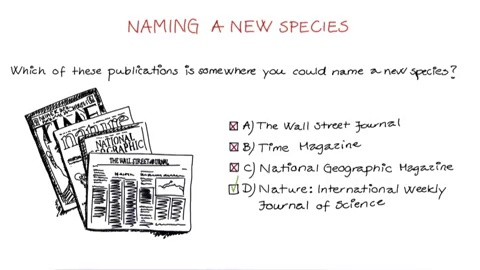 NAMING A NEW SPECIES
Which of these publications is somewhere you could name a new species?
TIME
nature
NATIONAL
GEOGRAPHIC
THE WALL STREET JOURNAL
A) The Wall Street Journal
B) Time Magazine
C) National Geographic Magazine
D) Nature: International Weekly
Journal of Science